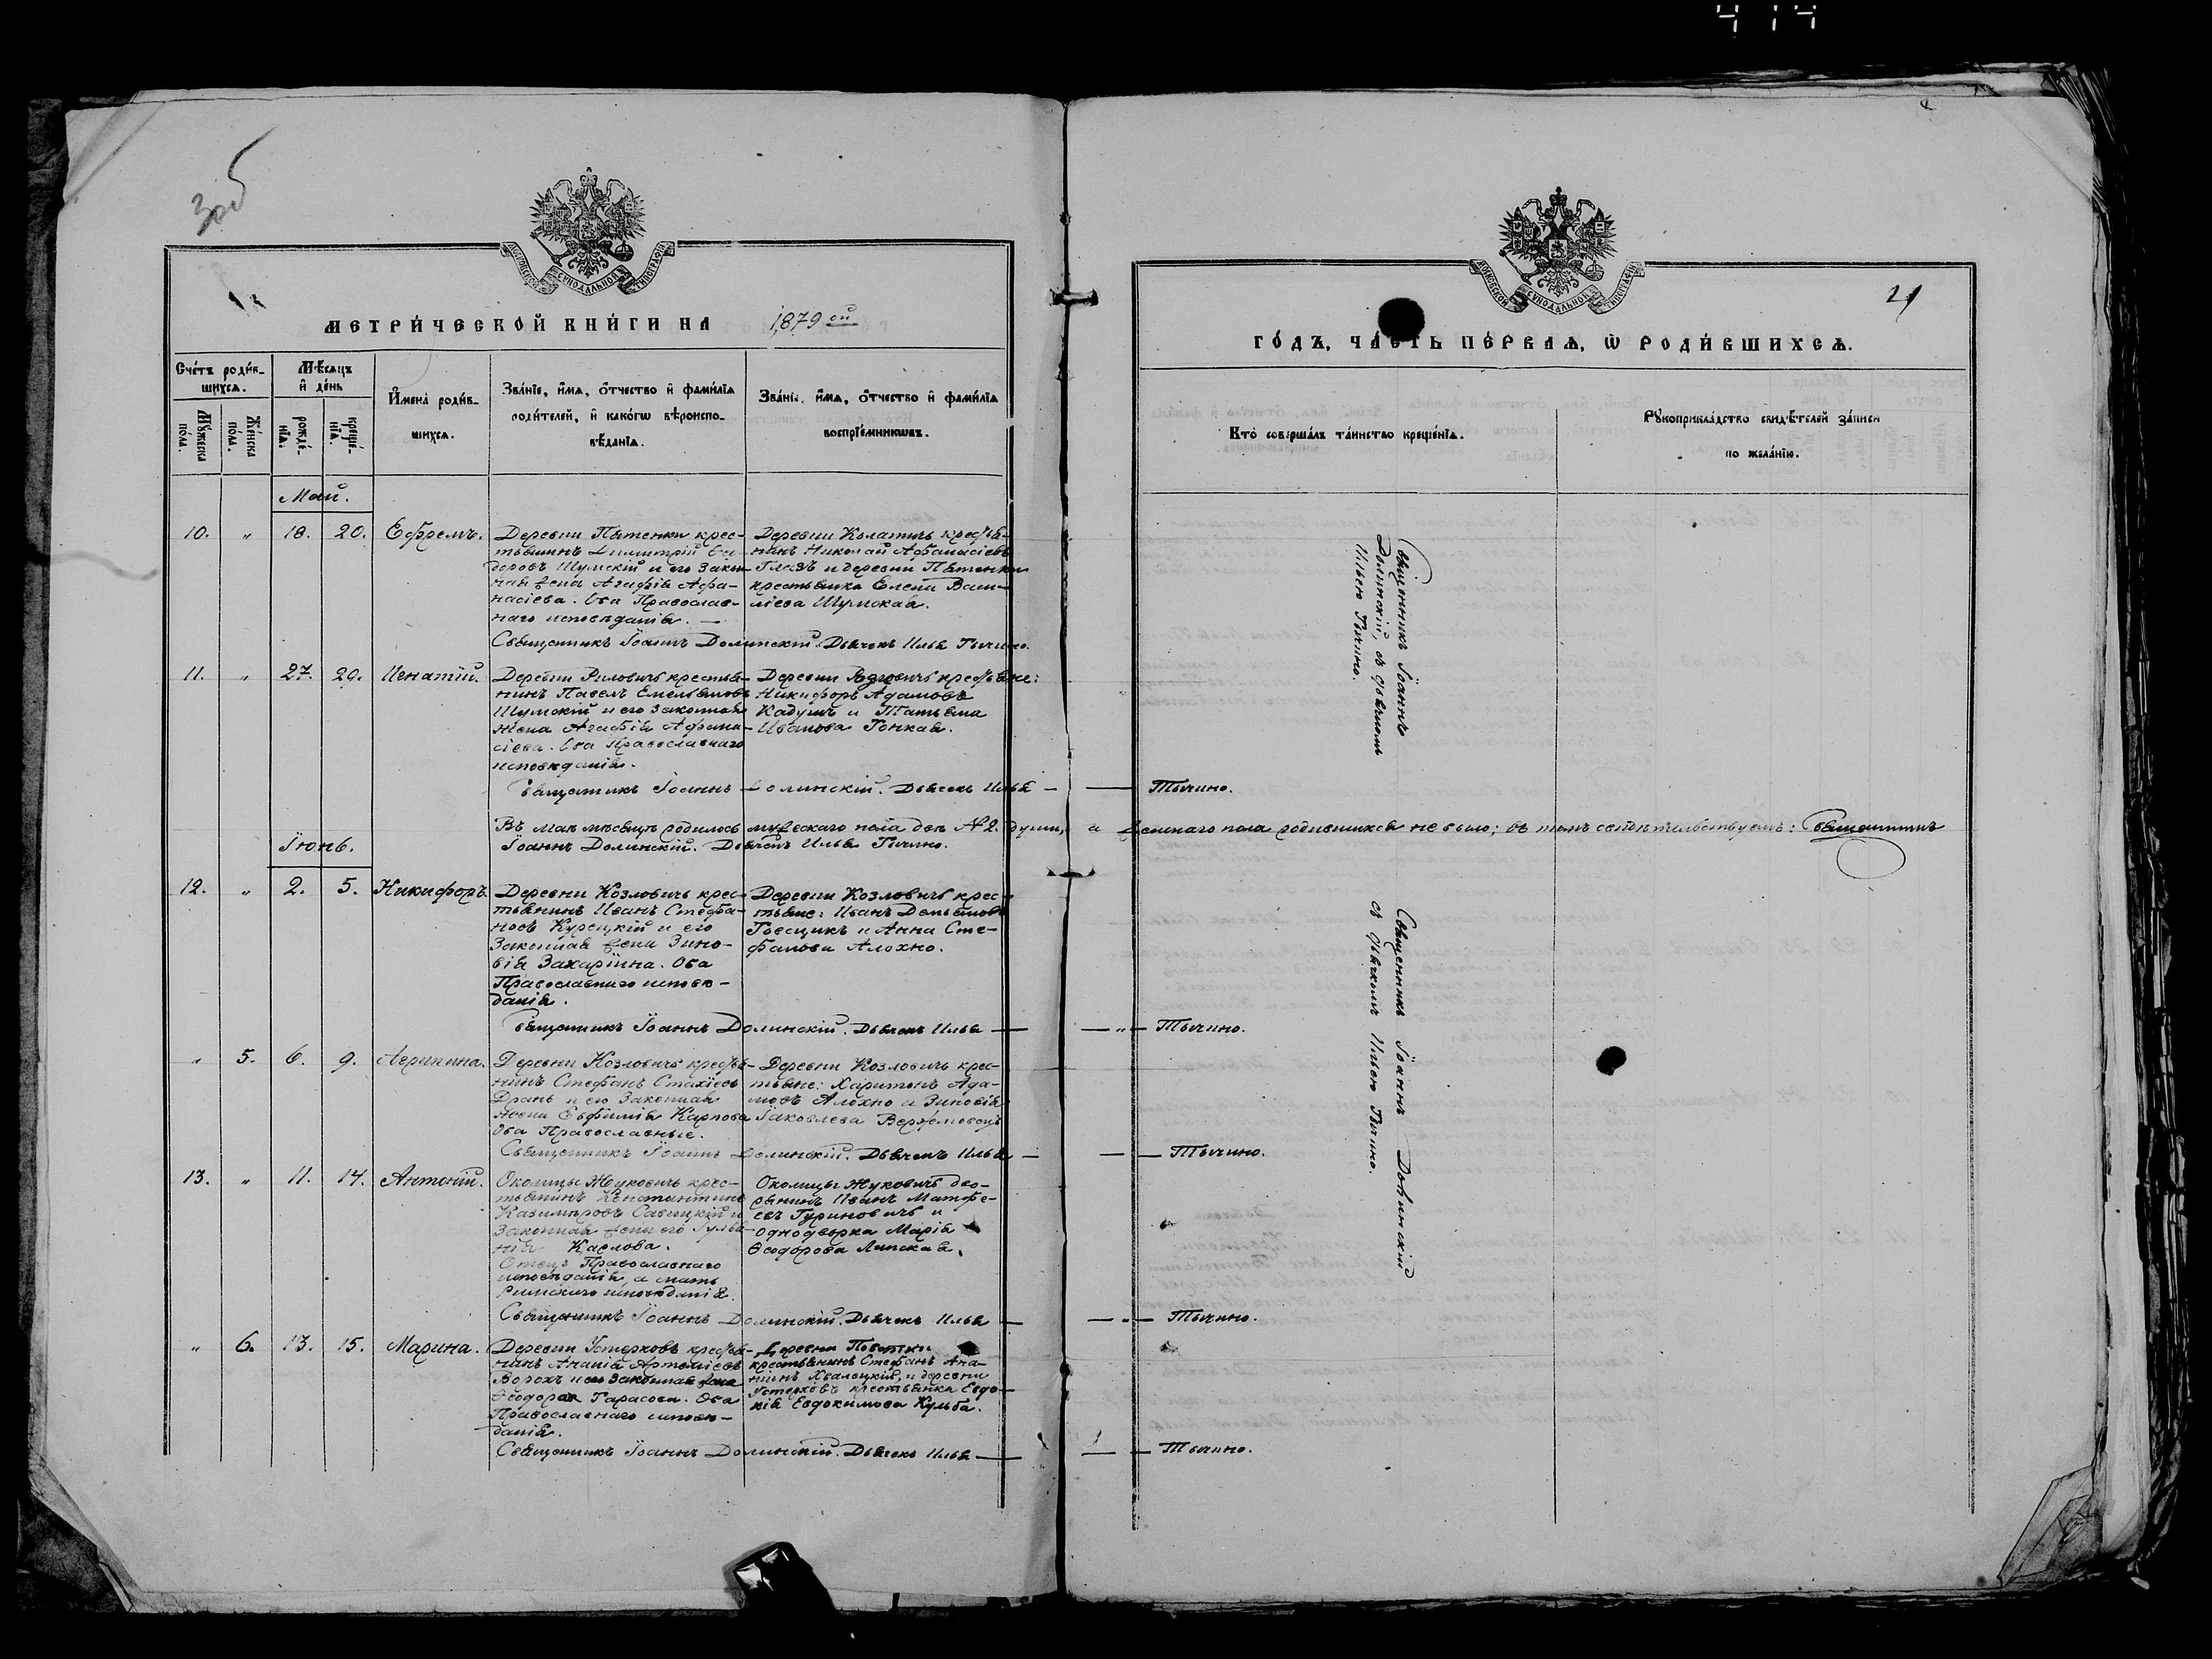 414
306
МОСКОВСКОЙ СУНОДАЛЬНОЙ ТИПОГРАФІИ
МЕТРИ́ЧЕСКОЙ КНИ́ГИ НА 1879 ой
Сче́тъ роди́в-
шихсѧ.
Мѣсѧцъ
и҆ де́нь
Мꙋ́жеска
пола.
Же́нска
по́ла.
рожде́-
нїѧ.
креще́-
нїѧ.
И҆мена̀ роди́в-
шихсѧ.
Зва́нїе, и҆́мѧ, ѻ҆́тчество и҆ фами́лїѧ
роди́телей, и҆ како́гѡ вѣроиспо-
вѣ́данїѧ.
Зва́нїе, и҆́мѧ, ѻ҆́тчество и҆ фами́лїѧ
воспрїе́мникѡвъ.
Май.
10. " 18. 20. Ефремъ.
Деревни Пятенки крес-
тьянинъ Димитрій
Шумскій и его закон-
ная жена Агафія Афа-
насіева. Оба Православ-
наго исповѣданія. —
Деревни Колатичъ крестья-
нинъ Николай Афанасіевъ
Глазъ и деревни Пятенки
крестьянка Елена Васи-
ліева Шумская.
Священникъ Іоаннъ Долинскій. Дьячекъ Илья Тычино.
11. " 27. 29. Игнатій.
Деревни крестья-
нинъ Павелъ Емельяновъ
Шумскій и его законная
жена Агафія Афана-
сіева. Оба Православнаго
исповѣданія.
Деревни крестьяне:
Никифоръ Адамовъ
Кадушъ и Татьяна
Иванова Гонкая.
Священникъ Іоаннъ Долинскій. Дьячекъ Илья —
Въ маѣ мѣсяцѣ родилось мужескаго пола двѣ № 2 души,
Іоаннъ Долинскій. Дьячекъ Илья Тычино.
Іюнь.
12. " 2. 5. Никифоръ
Деревни Козловичъ крес-
тьянинъ Иванъ Стефа-
новъ Курецкій и его
Законная жена Зино-
вія Захаріина. Оба
Православнаго исповѣ-
данія.
Деревни Козловичъ крес-
тьяне: Иванъ Демьяновъ
и Анна Сте-
фанова Алохно.
Священникъ Іоаннъ Долинскій. Дьячекъ Илья —
" 5. 6. 9. Агрипина.
Деревни Козловичъ крестья-
нинъ Стефанъ Стахіевъ
Дрань и его Законная
жена Евфимія Карпова
Оба Православные.
Деревни Козловичъ крес-
тьяне: Харитонъ Ада-
мовъ Алохно и Зиновія
Іаковлева
Священникъ Іоаннъ Долинскій. Дьячекъ Илья —
13. " 11. 14. Антоній.
Околицы Жуковичъ крес-
тьянинъ Константинъ
Казиміровъ Савицкій и
Законная жена его Іулья-
нія Карлова.
Отецъ Православнаго
исповѣданія, а мать
Римскаго исповѣданія.
Околицы Жуковичъ дво-
рянинъ Иванъ Матфе-
евъ Гуриновичъ и
однодворка Марія
Ѳеодорова Липская.
Священникъ Іоаннъ Долинскій. Дьячекъ Илья —
" 6. 13. 15. Марина.
Деревни Устерховъ крестья-
нинъ Ананія Артеміевъ
Ворохъ и его законная жена
Ѳеодора Тарасова. Оба
Православнаго исповѣ-
данія.
Деревни
крестьянинъ Стефанъ Ана-
ніинъ и деревни
Устерховъ крестьянка Евдо-
кія Евдокимова Кульба.
Священникъ Іоаннъ Долинскій. Дьячекъ Илья —
МОСКОВСКОЙ СУНОДАЛЬНОЙ ТИПОГРАФІИ
21
ГО́ДЪ, ЧА́СТЬ ПЕ́РВАѦ, Ѡ РОДИ́ВШИХСѦ.
Кто̀ соверша́лъ та́инство креще́нїѧ.
Рꙋкоприкла́дство свидѣ́телей за́писи
по жела́нїю.
Священникъ Іоаннъ
Долинскій, съ дьячкомъ
Ильею Тычино.
— Тычино.
а женскаго пола родившихся не было; въ томъ свидѣтельствуемъ: Священникъ
Священникъ Іоаннъ Долинскій
съ дьячкомъ Ильею Тычино.
— " — Тычино.
— Тычино.
— " — Тычино.
— Тычино.